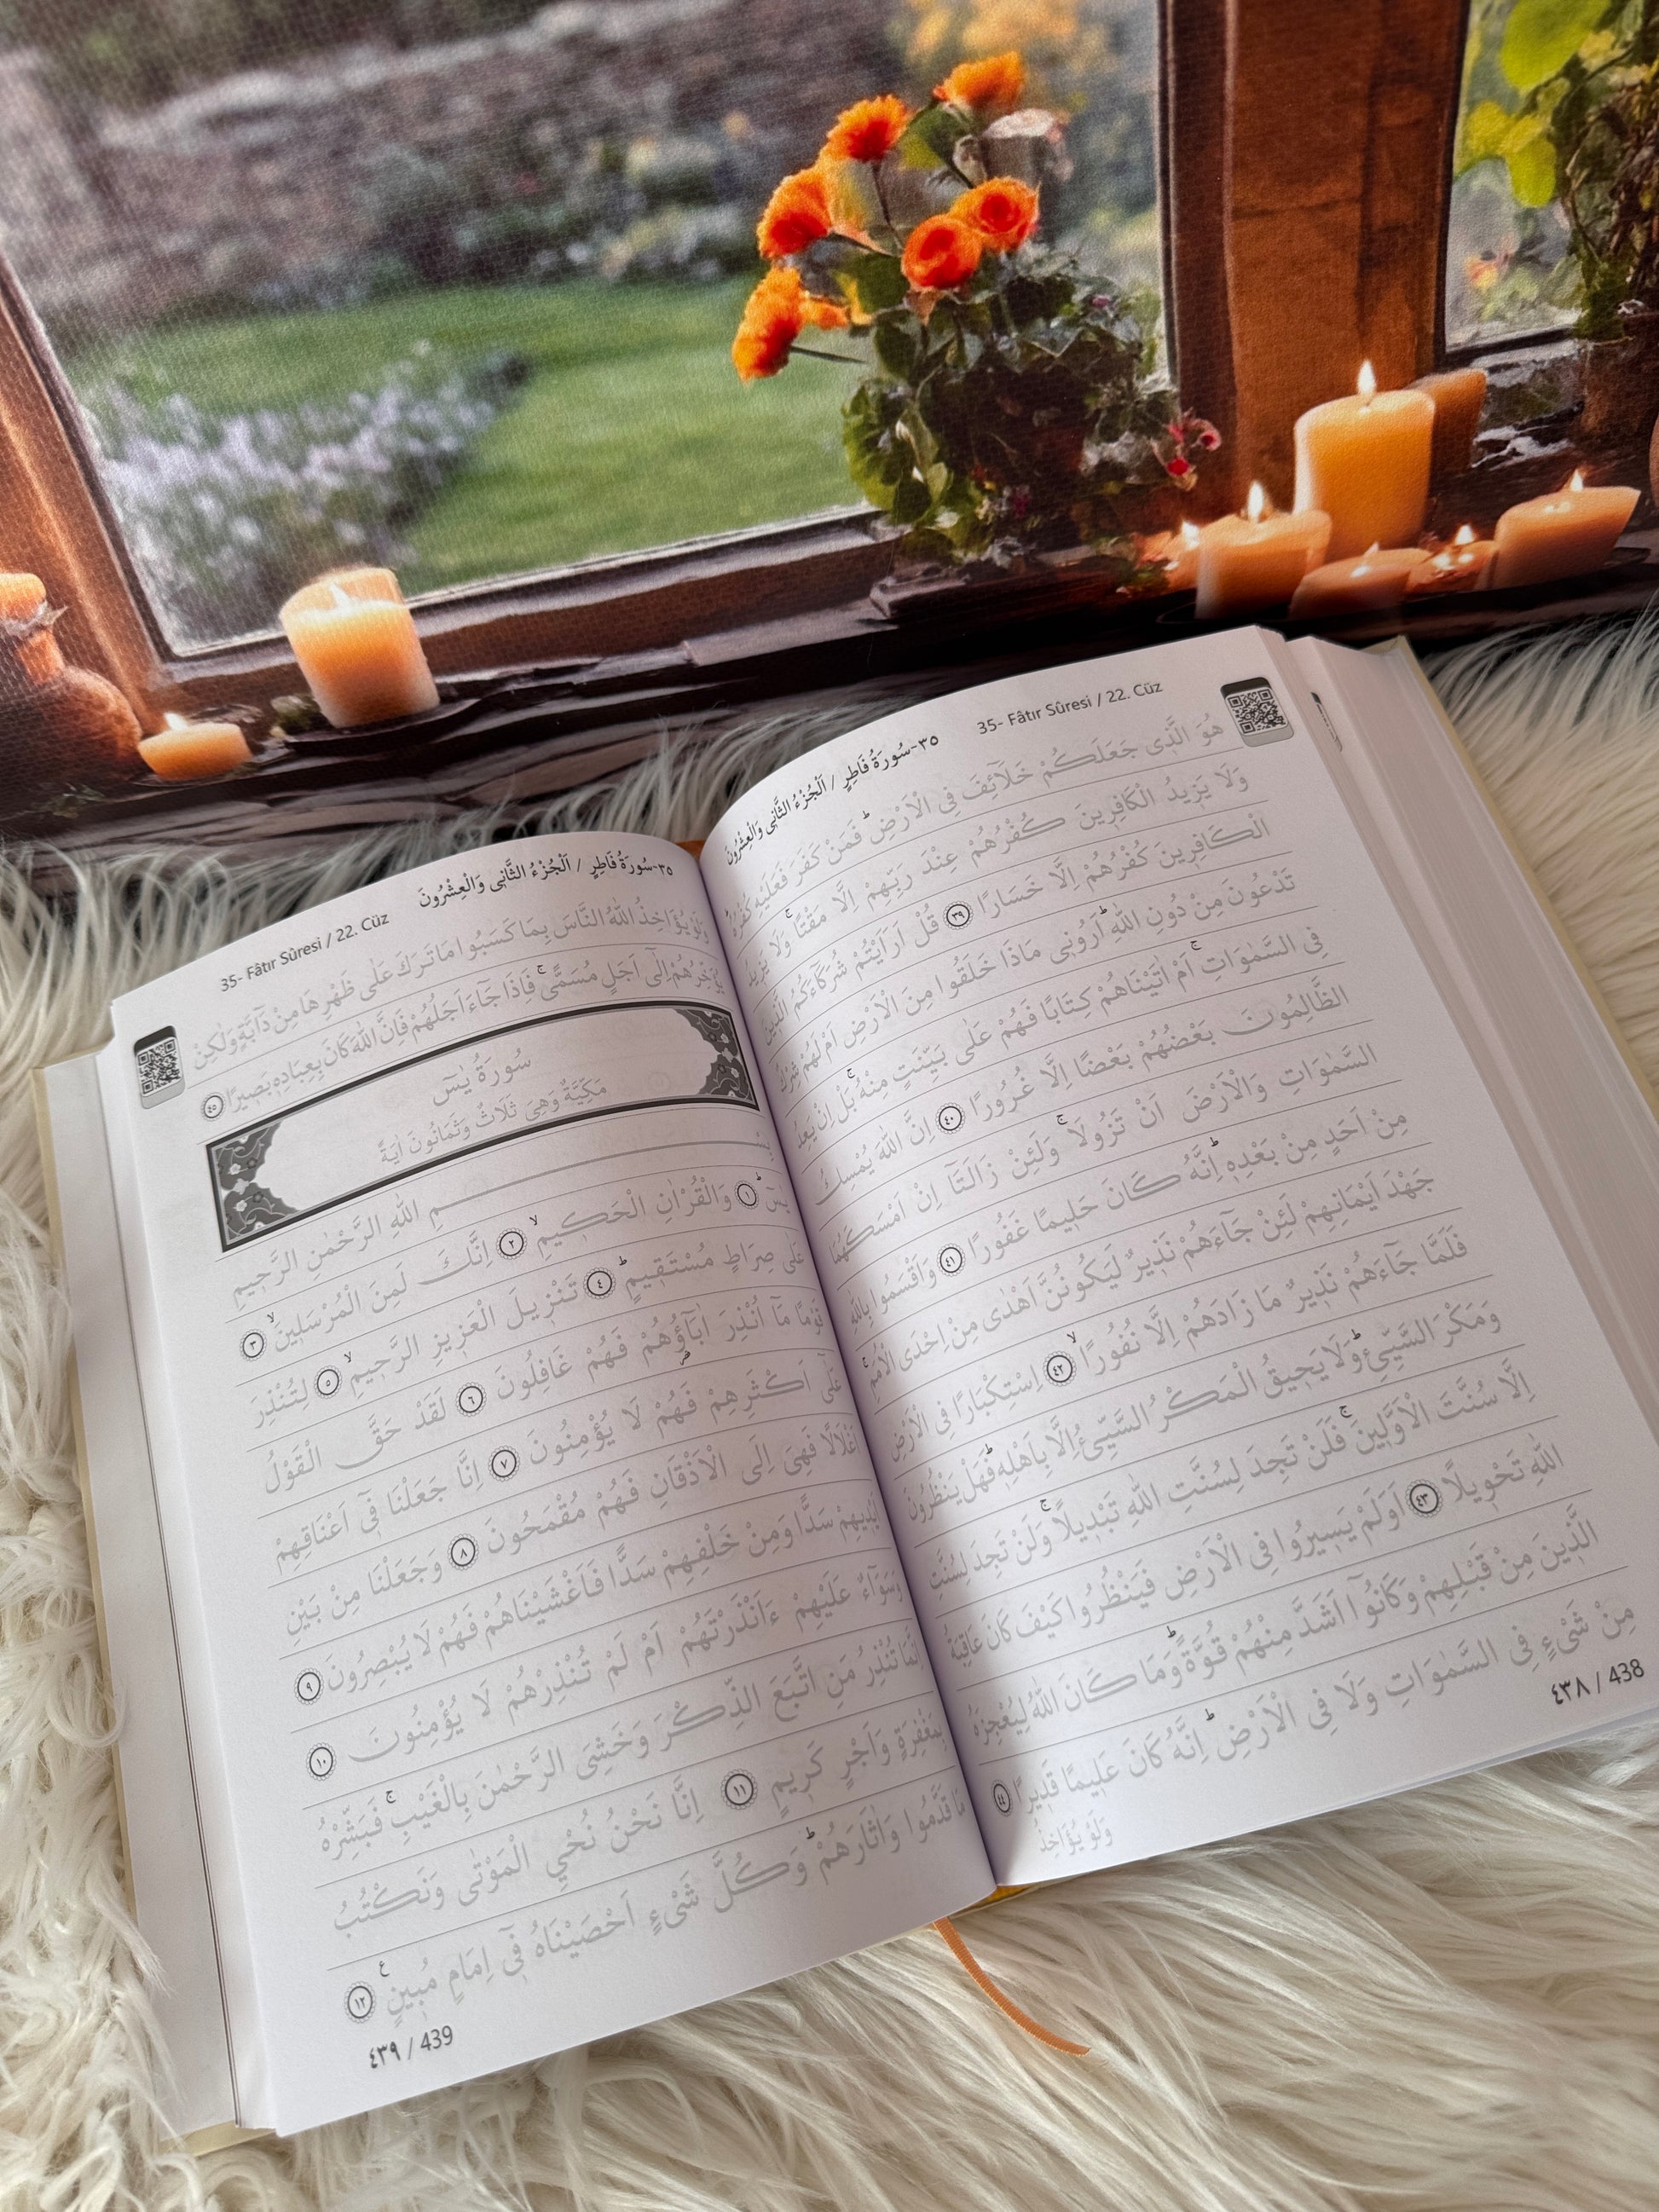 35- Fâtır Sûresi / 22. Cüz
٣٥-سُورَةُ فَاطِرٍ / اَلْجُزْءُ الثَّانِى وَالْعِشْرُونَ
هُوَ الَّذِى جَعَلَكُمْ خَلَٓائِفَ فِى الْاَرْضِۜ فَمَنْ كَفَرَ فَعَلَيْهِ كُفْرُهُۜ
وَلَا يَزِيدُ الْكَافِرِينَ كُفْرُهُمْ عِنْدَ رَبِّهِمْ اِلَّا مَقْتًاۚ وَلَا يَزِيدُ
الْكَافِرِينَ كُفْرُهُمْ اِلَّا خَسَارًا ٣٩ قُلْ اَرَاَيْتُمْ شُرَكَٓاءَكُمُ الَّذِينَ
تَدْعُونَ مِنْ دُونِ اللّٰهِۜ اَرُونِى مَاذَا خَلَقُوا مِنَ الْاَرْضِ اَمْ لَهُمْ شِرْكٌ
فِى السَّمٰوَاتِۚ اَمْ اٰتَيْنَاهُمْ كِتَابًا فَهُمْ عَلٰى بَيِّنَتٍ مِنْهُۚ بَلْ اِنْ يَعِدُ
الظَّالِمُونَ بَعْضُهُمْ بَعْضًا اِلَّا غُرُورًا ٤٠ اِنَّ اللّٰهَ يُمْسِكُ
السَّمٰوَاتِ وَالْاَرْضَ اَنْ تَزُولَاۚ وَلَئِنْ زَالَتَٓا اِنْ اَمْسَكَهُمَا
مِنْ اَحَدٍ مِنْ بَعْدِهِۜ اِنَّهُ كَانَ حَلِيمًا غَفُورًا ٤١ وَاَقْسَمُوا بِاللّٰهِ
جَهْدَ اَيْمَانِهِمْ لَئِنْ جَٓاءَهُمْ نَذِيرٌ لَيَكُونُنَّ اَهْدٰى مِنْ اِحْدَى الْاُمَمِۚ
فَلَمَّا جَٓاءَهُمْ نَذِيرٌ مَا زَادَهُمْ اِلَّا نُفُورًاۙ ٤٢ اِسْتِكْبَارًا فِى الْاَرْضِ
وَمَكْرَ السَّيِّئِۜ وَلَا يَحِيقُ الْمَكْرُ السَّيِّئُ اِلَّا بِاَهْلِهِۜ فَهَلْ يَنْظُرُونَ
اِلَّا سُنَّتَ الْاَوَّلِينَۚ فَلَنْ تَجِدَ لِسُنَّتِ اللّٰهِ تَبْدِيلًاۚ وَلَنْ تَجِدَ لِسُنَّتِ
اللّٰهِ تَحْوِيلًا ٤٣ اَوَلَمْ يَسِيرُوا فِى الْاَرْضِ فَيَنْظُرُوا كَيْفَ كَانَ عَاقِبَةُ
الَّذِينَ مِنْ قَبْلِهِمْ وَكَانُٓوا اَشَدَّ مِنْهُمْ قُوَّةًۜ وَمَا كَانَ اللّٰهُ لِيُعْجِزَهُ
مِنْ شَىْءٍ فِى السَّمٰوَاتِ وَلَا فِى الْاَرْضِۜ اِنَّهُ كَانَ عَلِيمًا قَدِيرًا ٤٤
وَلَوْ يُؤَاخِذُ
٤٣٨ / 438
35- Fâtır Sûresi / 22. Cüz
٣٥-سُورَةُ فَاطِرٍ / اَلْجُزْءُ الثَّانِى وَالْعِشْرُونَ
وَلَوْ يُؤَاخِذُ اللّٰهُ النَّاسَ بِمَا كَسَبُوا مَا تَرَكَ عَلٰى ظَهْرِهَا مِنْ دَٓابَّةٍ وَلٰكِنْ
يُؤَخِّرُهُمْ اِلٰٓى اَجَلٍ مُسَمًّىۚ فَاِذَا جَٓاءَ اَجَلُهُمْ فَاِنَّ اللّٰهَ كَانَ بِعِبَادِهِ بَصِيرًا ٤٥
سُورَةُ يٰسٓ
مَكِّيَّةٌ وَهِىَ ثَلَاثٌ وَثَمَانُونَ اٰيَةً
بِسْمِ اللّٰهِ الرَّحْمٰنِ الرَّحِيمِ
يٰسٓۜ ١ وَالْقُرْاٰنِ الْحَكِيمِۙ ٢ اِنَّكَ لَمِنَ الْمُرْسَلِينَۙ ٣
عَلٰى صِرَاطٍ مُسْتَقِيمٍۜ ٤ تَنْزِيلَ الْعَزِيزِ الرَّحِيمِۙ ٥ لِتُنْذِرَ
قَوْمًا مَٓا اُنْذِرَ اٰبَٓاؤُهُمْ فَهُمْ غَافِلُونَ ٦ لَقَدْ حَقَّ الْقَوْلُ
عَلٰٓى اَكْثَرِهِمْ فَهُمْ لَا يُؤْمِنُونَ ٧ اِنَّا جَعَلْنَا فِٓى اَعْنَاقِهِمْ
اَغْلَالًا فَهِىَ اِلَى الْاَذْقَانِ فَهُمْ مُقْمَحُونَ ٨ وَجَعَلْنَا مِنْ بَيْنِ
اَيْدِيهِمْ سَدًّا وَمِنْ خَلْفِهِمْ سَدًّا فَاَغْشَيْنَاهُمْ فَهُمْ لَا يُبْصِرُونَ ٩
وَسَوَٓاءٌ عَلَيْهِمْ ءَاَنْذَرْتَهُمْ اَمْ لَمْ تُنْذِرْهُمْ لَا يُؤْمِنُونَ ١٠
اِنَّمَا تُنْذِرُ مَنِ اتَّبَعَ الذِّكْرَ وَخَشِىَ الرَّحْمٰنَ بِالْغَيْبِۚ فَبَشِّرْهُ
بِمَغْفِرَةٍ وَاَجْرٍ كَرِيمٍ ١١ اِنَّا نَحْنُ نُحْيِ الْمَوْتٰى وَنَكْتُبُ
مَا قَدَّمُوا وَاٰثَارَهُمْۜ وَكُلَّ شَىْءٍ اَحْصَيْنَاهُ فِٓى اِمَامٍ مُبِينٍ ١٢
ع
٤٣٩ / 439